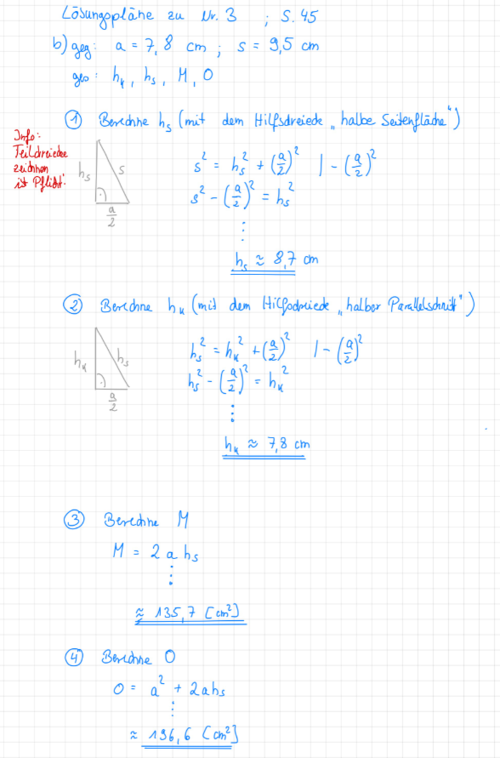 Lösungspläne zu Nr. 3 ; S. 45
b) geg: a = 7,8 cm ; s = 9,5 cm
ges: hₖ, hₛ, M, O
① Berechne hₛ (mit dem Hilfsdreieck „halbe Seitenfläche")
Info:
Teildreiecke
zeichnen
ist Pflicht!
hₛ s
a/2
s² = hₛ² + (a/2)² | - (a/2)²
s² - (a/2)² = hₛ²
⋮
hₛ ≈ 8,7 cm
② Berechne hₖ (mit dem Hilfsdreieck „halber Parallelschnitt")
hₖ hₛ
a/2
hₛ² = hₖ² + (a/2)² | - (a/2)²
hₛ² - (a/2)² = hₖ²
⋮
hₖ ≈ 7,8 cm
③ Berechne M
M = 2 a hₛ
⋮
≈ 135,7 [cm²]
④ Berechne O
O = a² + 2ahₛ
⋮
≈ 196,6 [cm²]